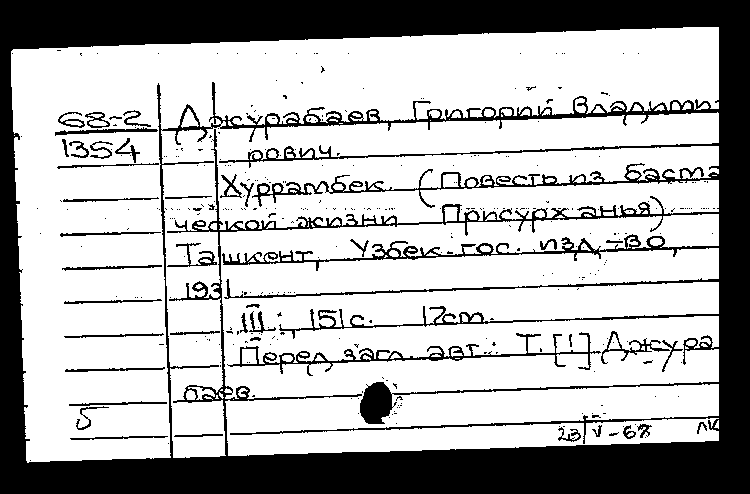 68-2 Джурабаев, Григорий Владими-
1354 рович.
Хуррамбек. (Повесть из басма
ческой жизни Присурханья)
Ташкент, Узбек. гос. изд-во,
1931.
III; 151с. 17cm.
Перед загл. авт.: Т. [!] Джура
баев.
5
23/V-68 ЛК